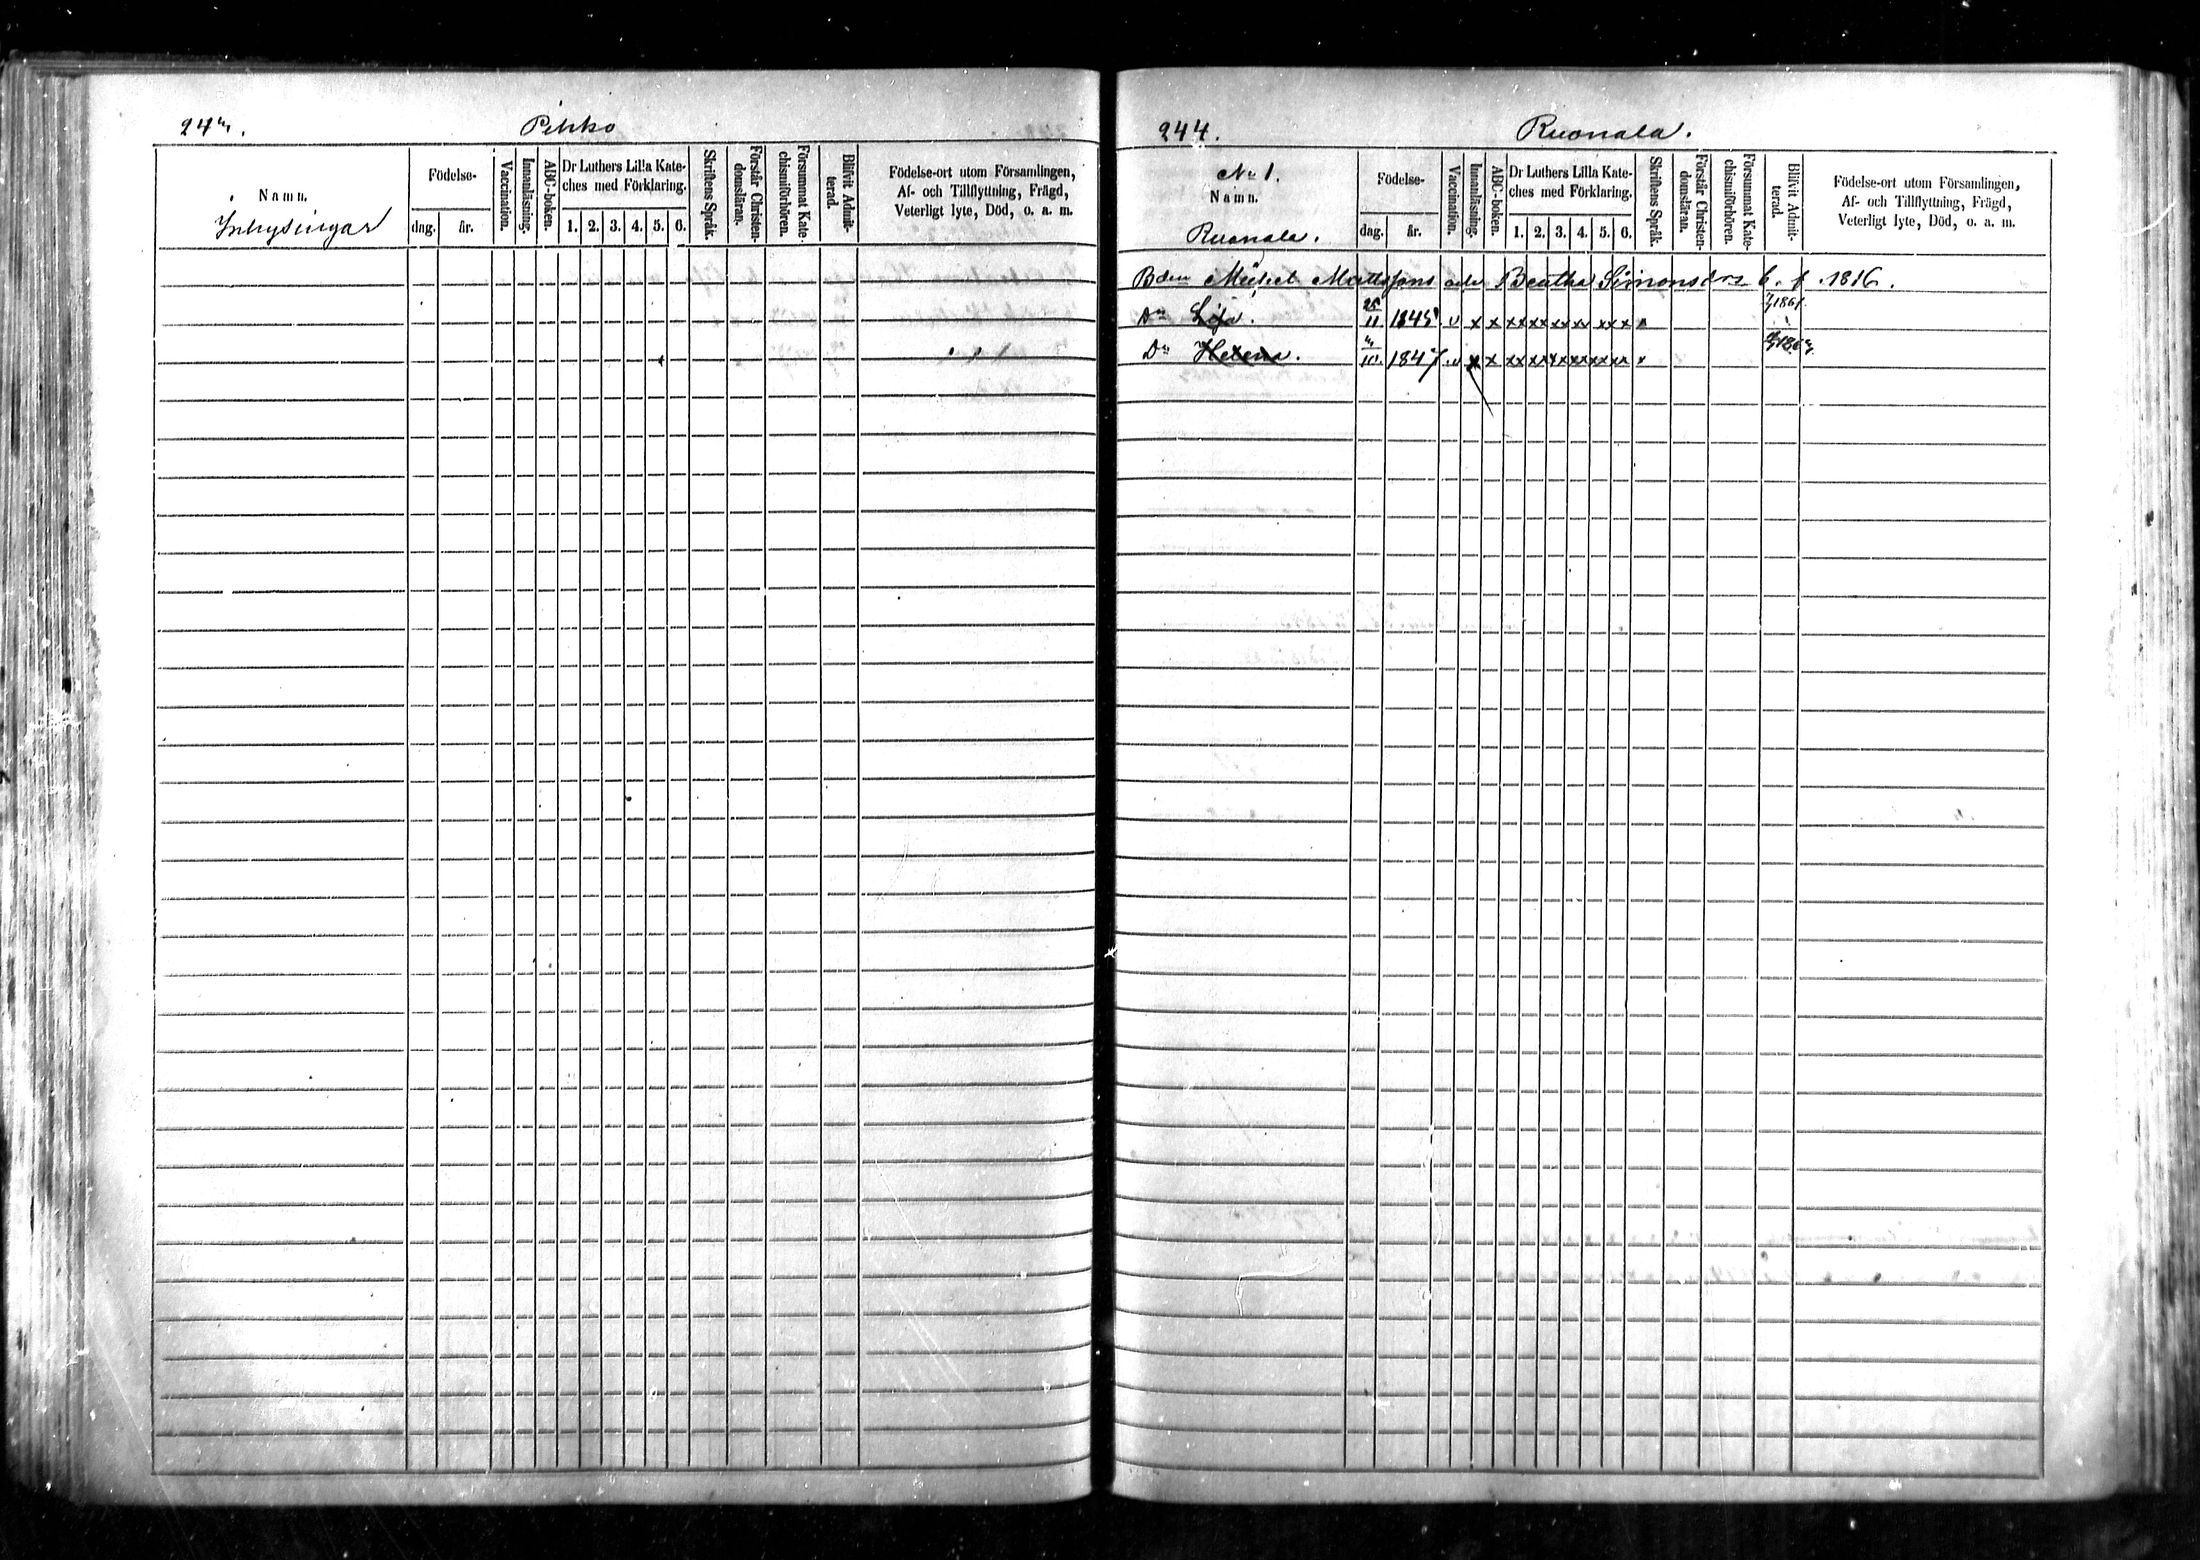 243.
Pekko
Namn.
Inhysingar
Födelse-
dag. år.
Vaccination.
Innanläsning.
ABC-boken.
Dr Luthers Lilla Kate-
ches med Förklaring.
1. 2. 3. 4. 5. 6.
Skriftens Språk.
Förstår Christen-
domsläran.
Försummat Kate-
chismiförhören.
Blifvit Admit-
terad.
Födelse-ort utom Församlingen,
Af- och Tillflyttning, Frägd,
Veterligt lyte, Död, o. a. m.
244.
Ruonala.
No 1.
Namn.
Ruonala.
Födelse-
dag. år.
Vaccination.
Innanläsning.
ABC-boken.
Dr Luthers Lilla Kate-
ches med Förklaring.
1. 2. 3. 4. 5. 6.
Skriftens Språk.
Förstår Christen-
domsläran.
Försummat Kate-
chismiförhören.
Blifvit Admit-
terad.
Födelse-ort utom Församlingen,
Af- och Tillflyttning, Frägd,
Veterligt lyte, Död, o. a. m.
Bden Michel Mattssons och Beatha Simonsdrs b. f. 1816.
Dr Lisa. 25/11 1845 v x x xx xx xx xx xx x x
Dr Helena. 3/10 1847 v x x xx xx xx xx xx xx x